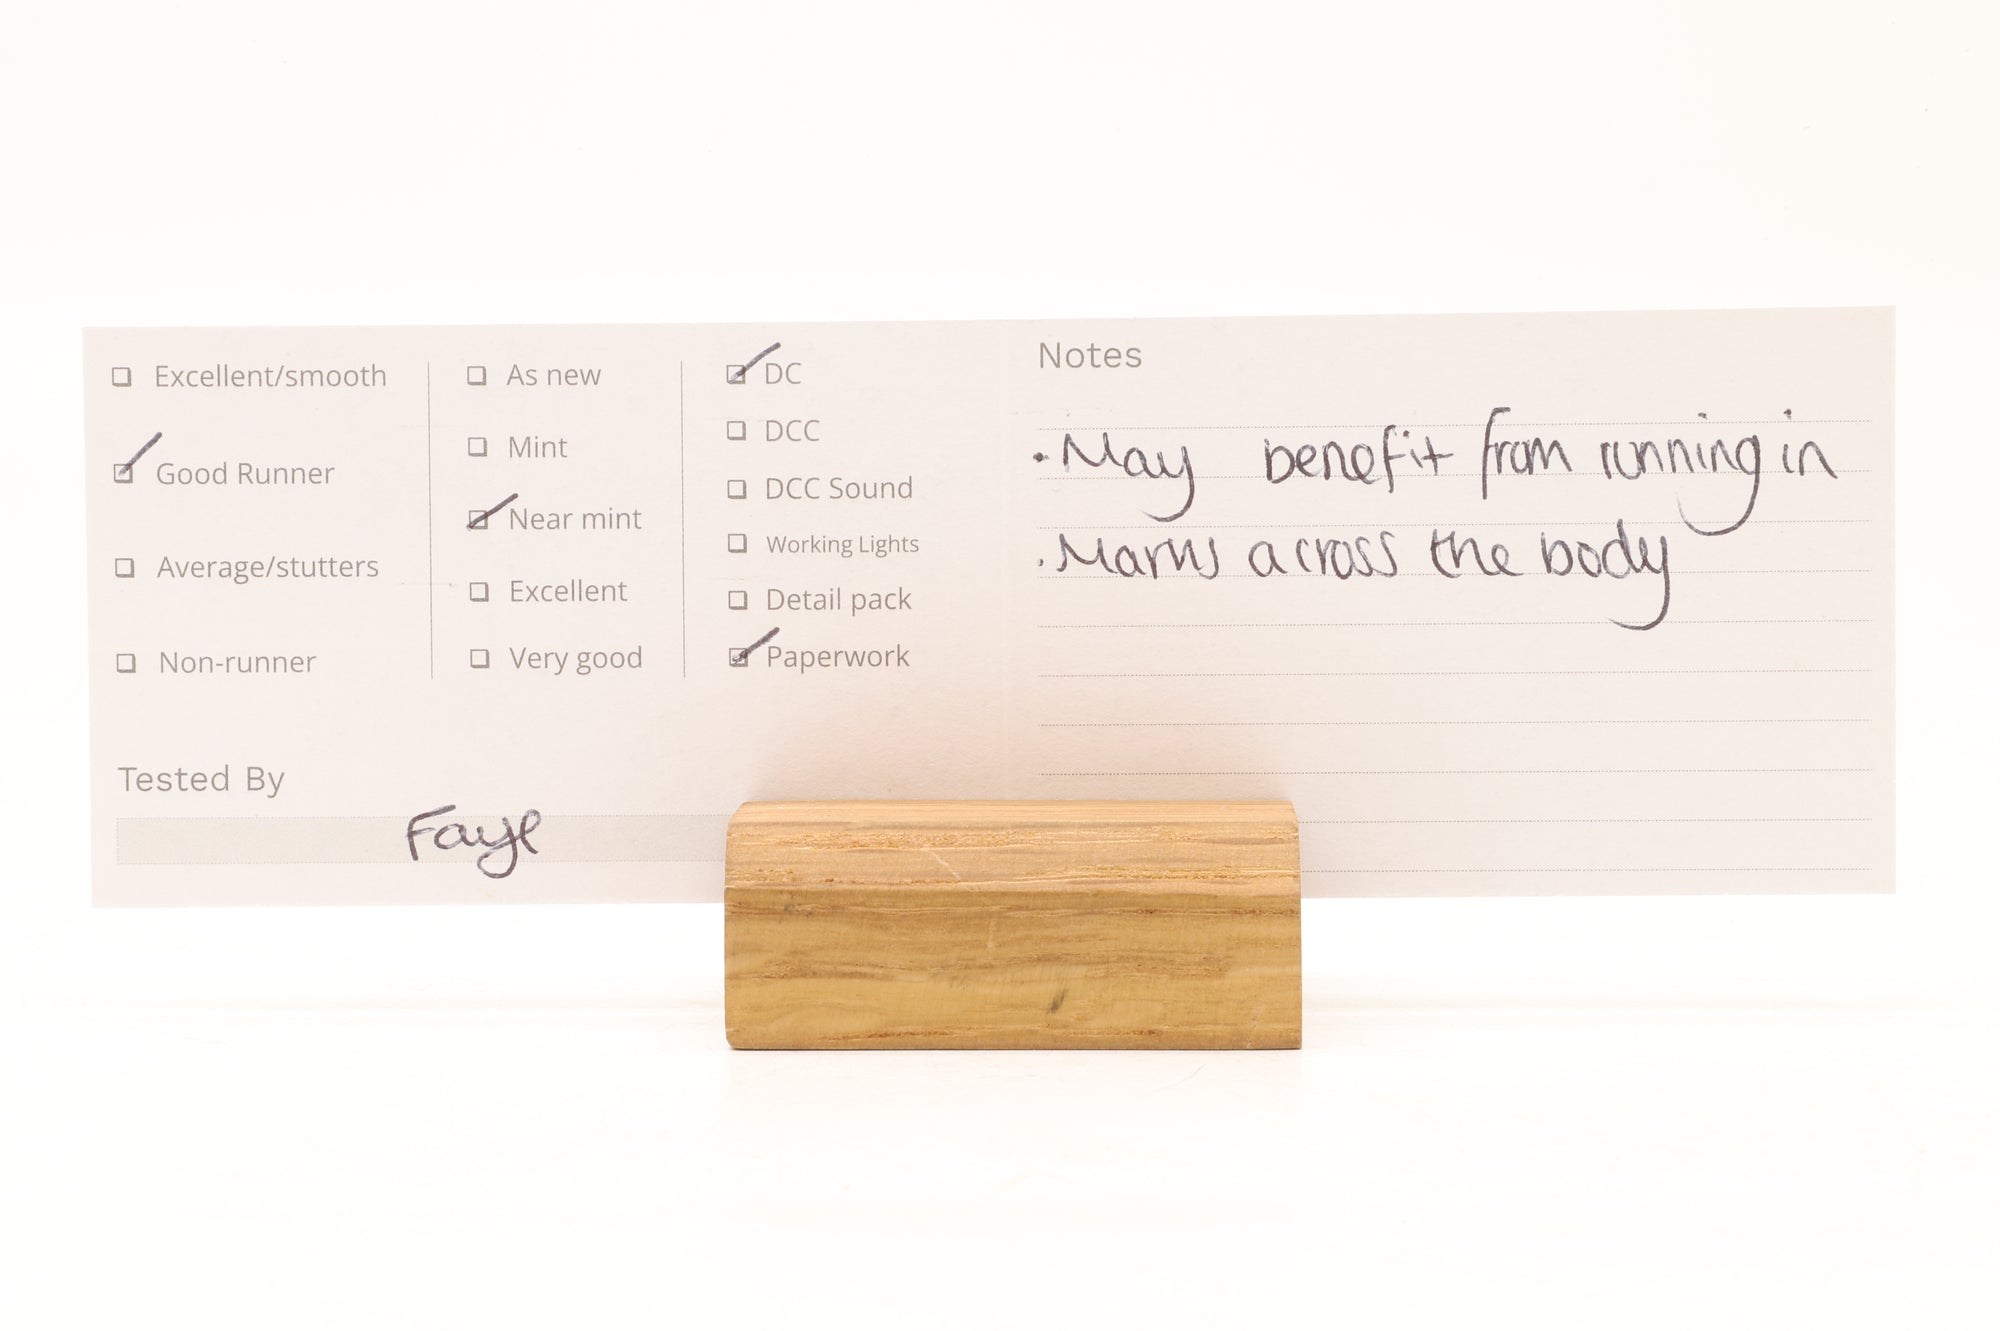 Excellent/smooth
Good Runner
Average/stutters
Non-runner
As new
Mint
Near mint
Excellent
Very good
DC
DCC
DCC Sound
Working Lights
Detail pack
Paperwork
Tested By
Faye
Notes
· May benefit from running in
· Marks across the body